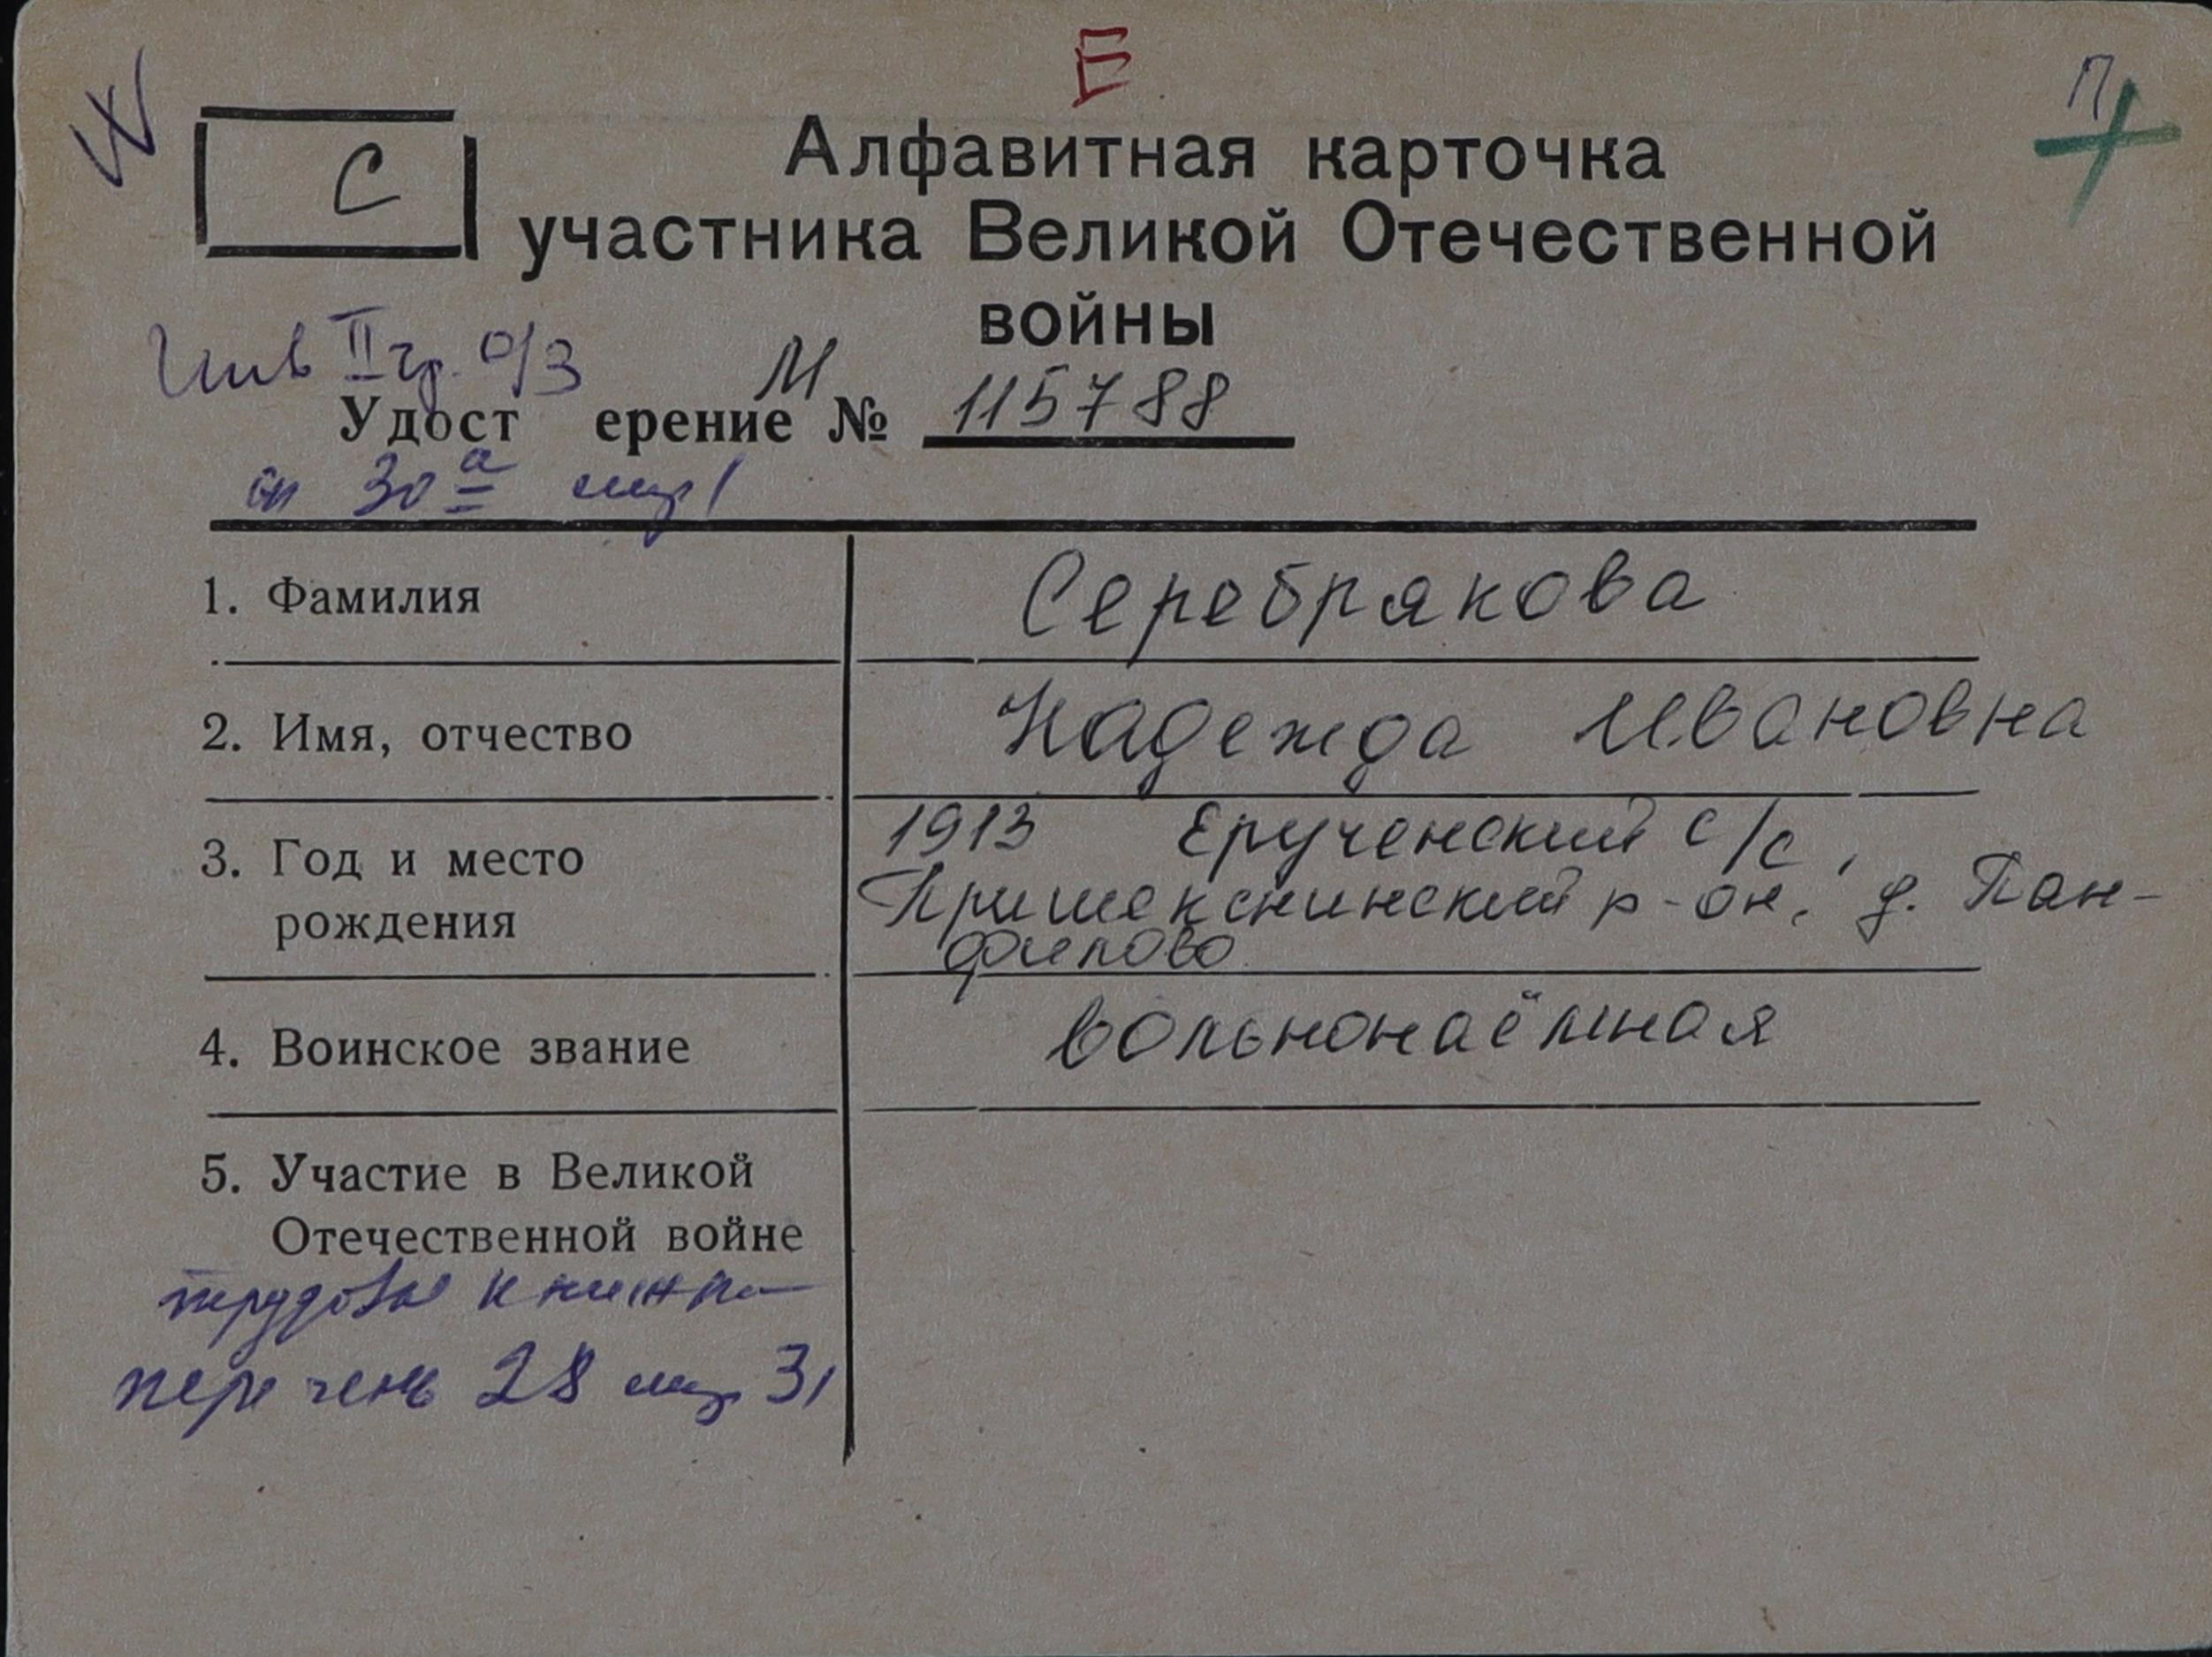 Е
П
С
Алфавитная карточка
участника Великой Отечественной
войны
Инв II гр. о/з
М
Удост ерение № 115788
сп 30а стр 1
1. Фамилия Серебрякова
2. Имя, отчество Надежда Ивановна
3. Год и место 1913 Ерученский с/с,
Пришекснинский р-он, д. Пан-
рождения филово
4. Воинское звание вольнонаёмная
5. Участие в Великой
Отечественной войне
трудовая книжка
перечень 28 стр 31